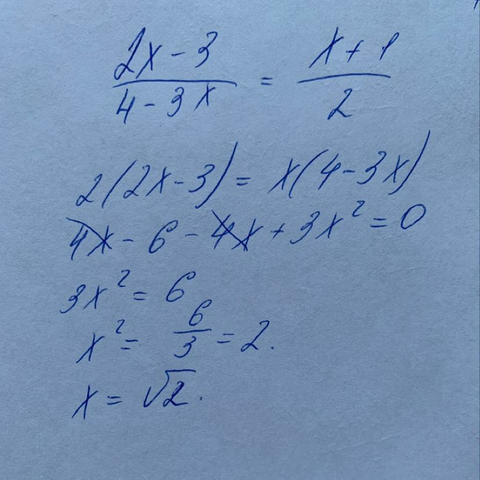 (2x - 3)/(4 - 3x) = (x + 1)/2
2(2x - 3) = x(4 - 3x)
4x - 6 - 4x + 3x² = 0
3x² = 6
x² = 6/3 = 2.
x = √2.